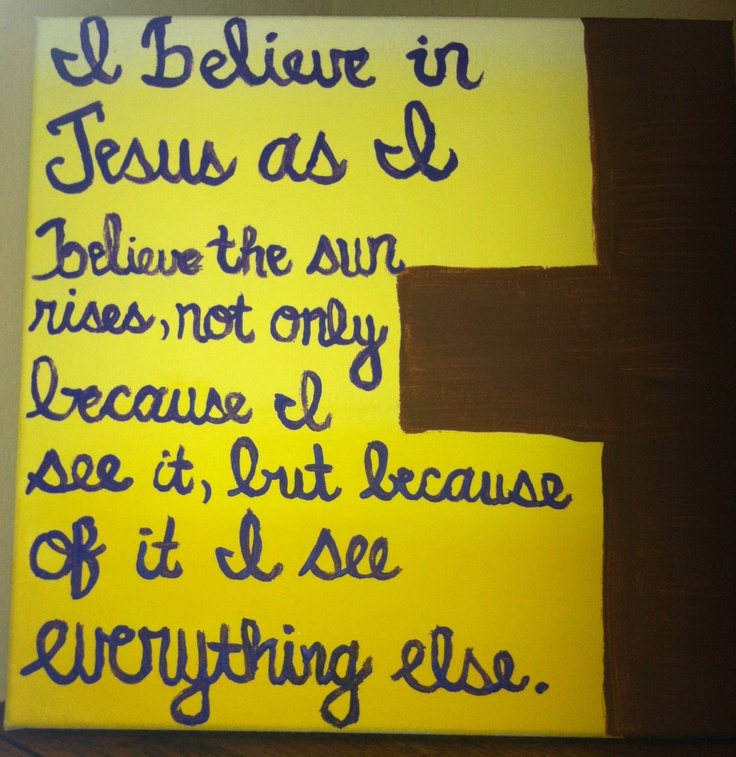 I Believe in
Jesus as I
Believe the sun
rises, not only
because I
see it, but because
of it I see
everything else.